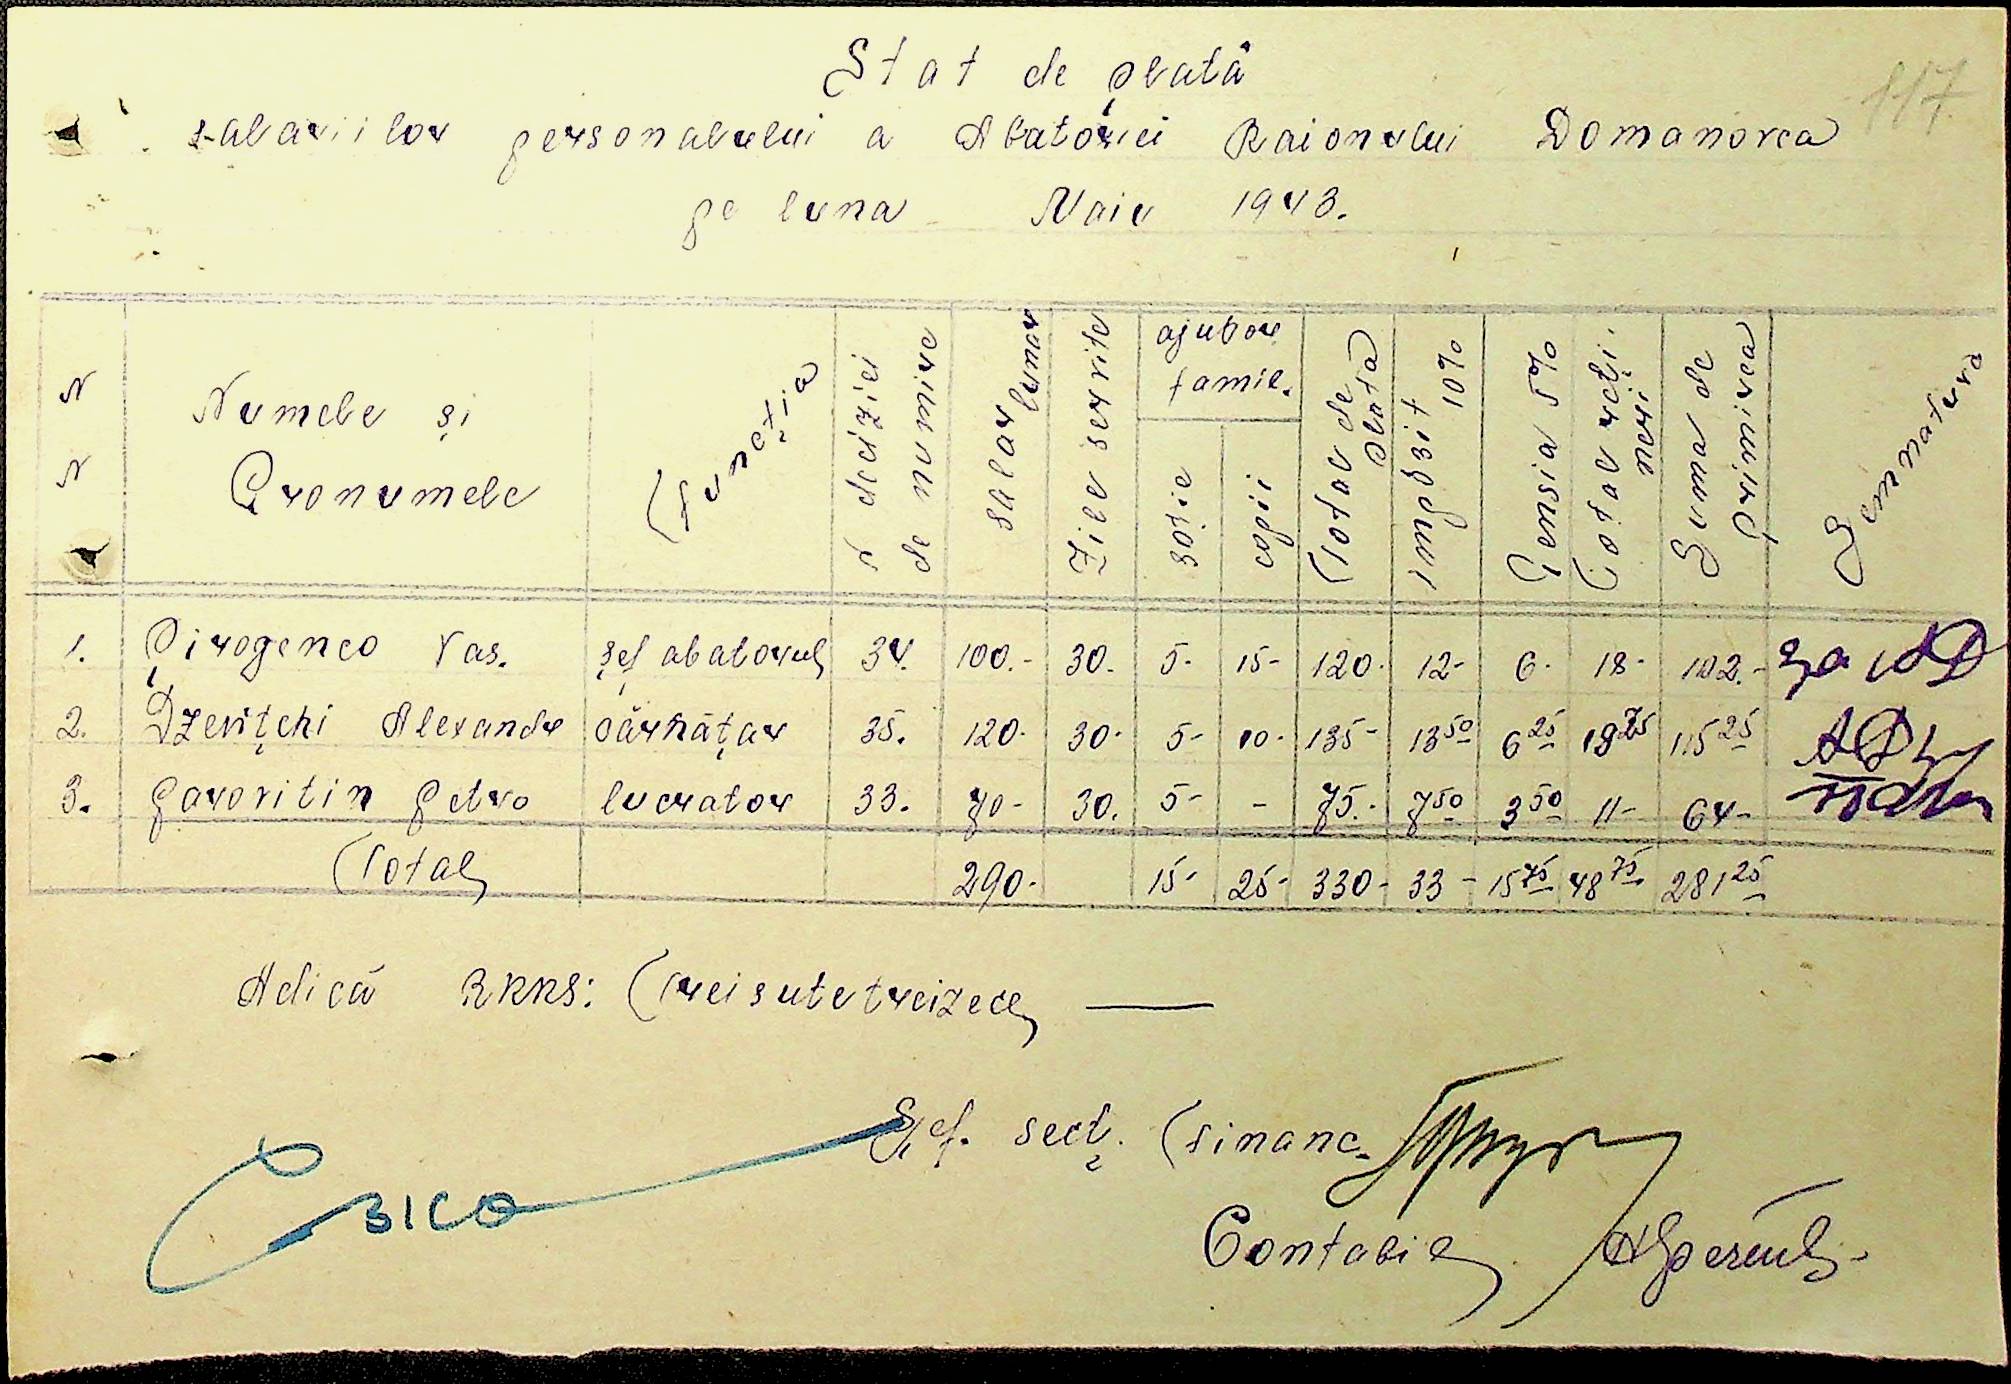 117.
Stat de plată
salariilor personalului a Abatoriei Raionului Domanovca
pe luna Maiu 1943.
N N | Numele și Pronumele | Funcția | N deciziei de numire | Salar lunar | Zile servite | ajutor famil. soție | copii | Total de plată | impozit 10% | Pensia 5% | Total rețineri | Suma de primirea | Semnatura
1. | Pirogenco Vas. | șef abatorul | 34. | 100.- | 30. | 5- | 15- | 120- | 12- | 6- | 18- | 102.- | за
2. | Dzevițchi Alexandr | cărnățar | 35. | 120- | 30- | 5- | 10- | 135- | 13 50 | 6 25 | 19 75 | 115 25
3. | Pavoritin Petro | lucrator | 33. | 70- | 30. | 5- | - | 75.- | 7 50 | 3 50 | 11- | 64-
Total | 290- | 15- | 25- | 330- | 33- | 15 75 | 48 75 | 281 25
Adică RKKS: Treisutetreizeci —
Șef. secț. Financ.
Contabil